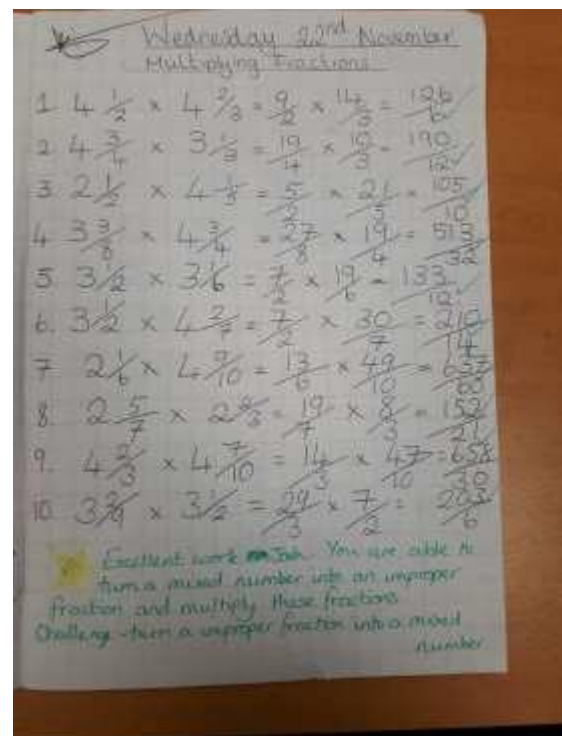 Wednesday 22nd November
Multiplying Fractions
1 4 1/2 × 4 2/3 = 9/2 × 14/3 = 126/6
2 4 3/4 × 3 1/3 = 19/4 × 10/3 = 190/12
3 2 1/2 × 4 1/5 = 5/2 × 21/5 = 105/10
4 3 3/8 × 4 3/4 = 27/8 × 19/4 = 513/32
5 3 1/2 × 3 1/6 = 7/2 × 19/6 = 133/12
6. 3 1/2 × 4 2/7 = 7/2 × 30/7 = 210/14
7 2 1/6 × 4 9/10 = 13/6 × 49/10 = 637/60
8. 2 5/7 × 2 2/3 = 19/7 × 8/3 = 152/21
9. 4 2/3 × 4 7/10 = 14/3 × 47/10 = 658/30
10 3 × 3 1/2 = 29/3 × 7/2 = 203/6
Excellent work Josh. You are able to
turn a mixed number into an improper
fraction and multiply these fractions
Challenge - turn a improper fraction into a mixed
number